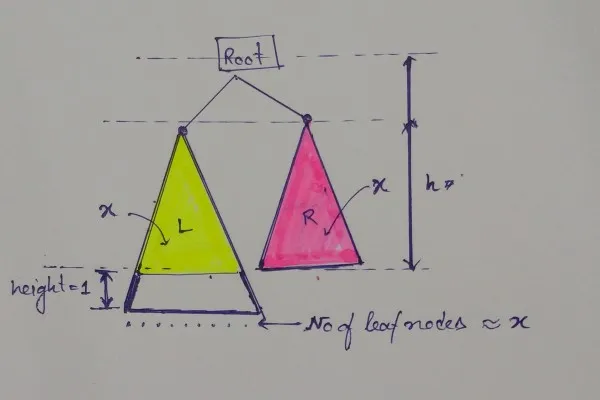 Root
x
L
R
x
h =
height=1
No of leaf nodes ≈ x